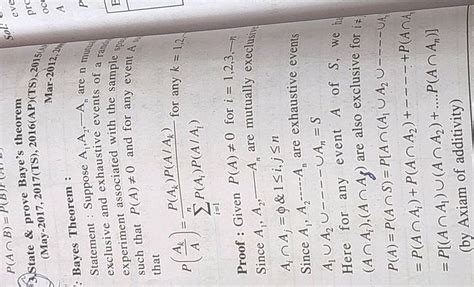 P(A∩B) = P(B)P(A
State & prove Baye's theorem
(May-2017, 2017(TS), 2016(AP)(TS), 2015,
Mar-2012, 2
Bayes Theorem :
Statement : Suppose A₁,A₂,---Aₙ are n mutu
exclusive and exhaustive events of a rand
experiment associated with the sample spa
such that P(A) ≠ 0 and for any event A
that
P(Aₖ/A) = P(Aₖ)P(A/Aₖ) / Σⁿᵢ₌₁ P(Aᵢ)P(A/Aᵢ) for any k = 1,2,
Proof : Given P(Aᵢ) ≠ 0 for i = 1,2,3,--n
Since A₁, A₂, ---- Aₙ are mutually execlusive
Aᵢ ∩ Aⱼ = φ & 1 ≤ i, j ≤ n
Since A₁, A₂ ---- Aₙ are exhaustive events
A₁ ∪ A₂ ∪ ---- ∪ Aₙ = S
Here for any event A of S, we h
(A∩Aᵢ),(A∩Aⱼ) are also exclusive for i ≠
P(A) = P(A∩S) = P(A∩(A₁∪A₂∪---- ∪A
= P(A∩A₁) + P(A∩A₂) + ----- + P(A∩A
= P[(A∩A₁)∪(A∩A₂)+....P(A∩Aₙ)]
(by Axiam of additivity)